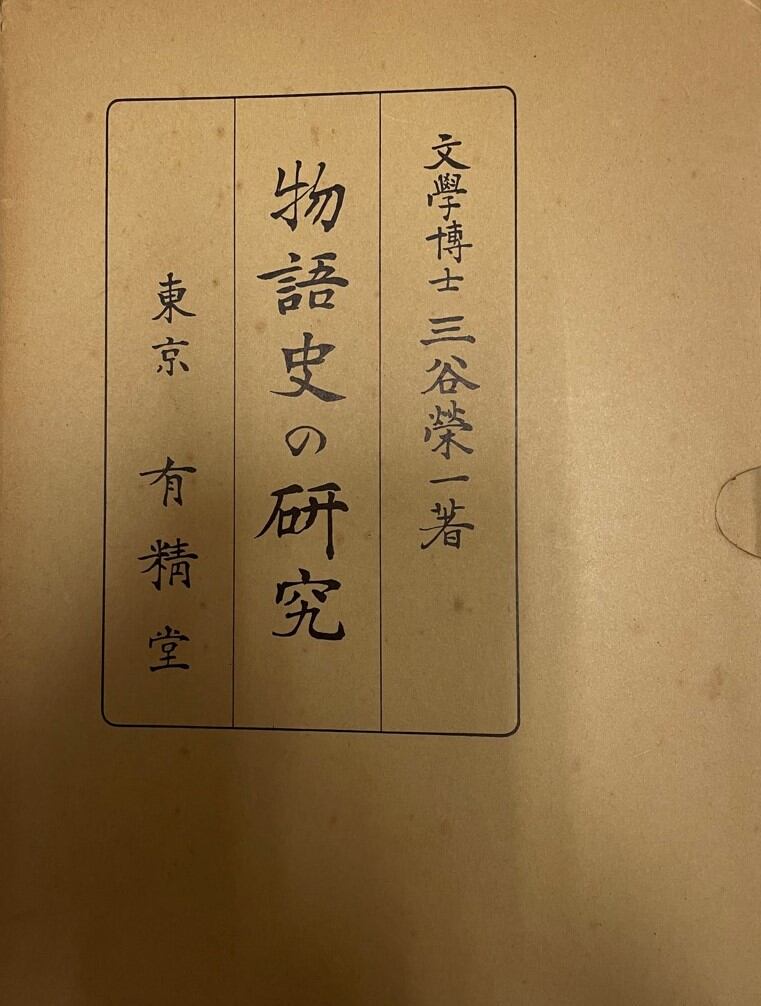 文學博士 三谷榮一著
物語史の研究
東京 有精堂